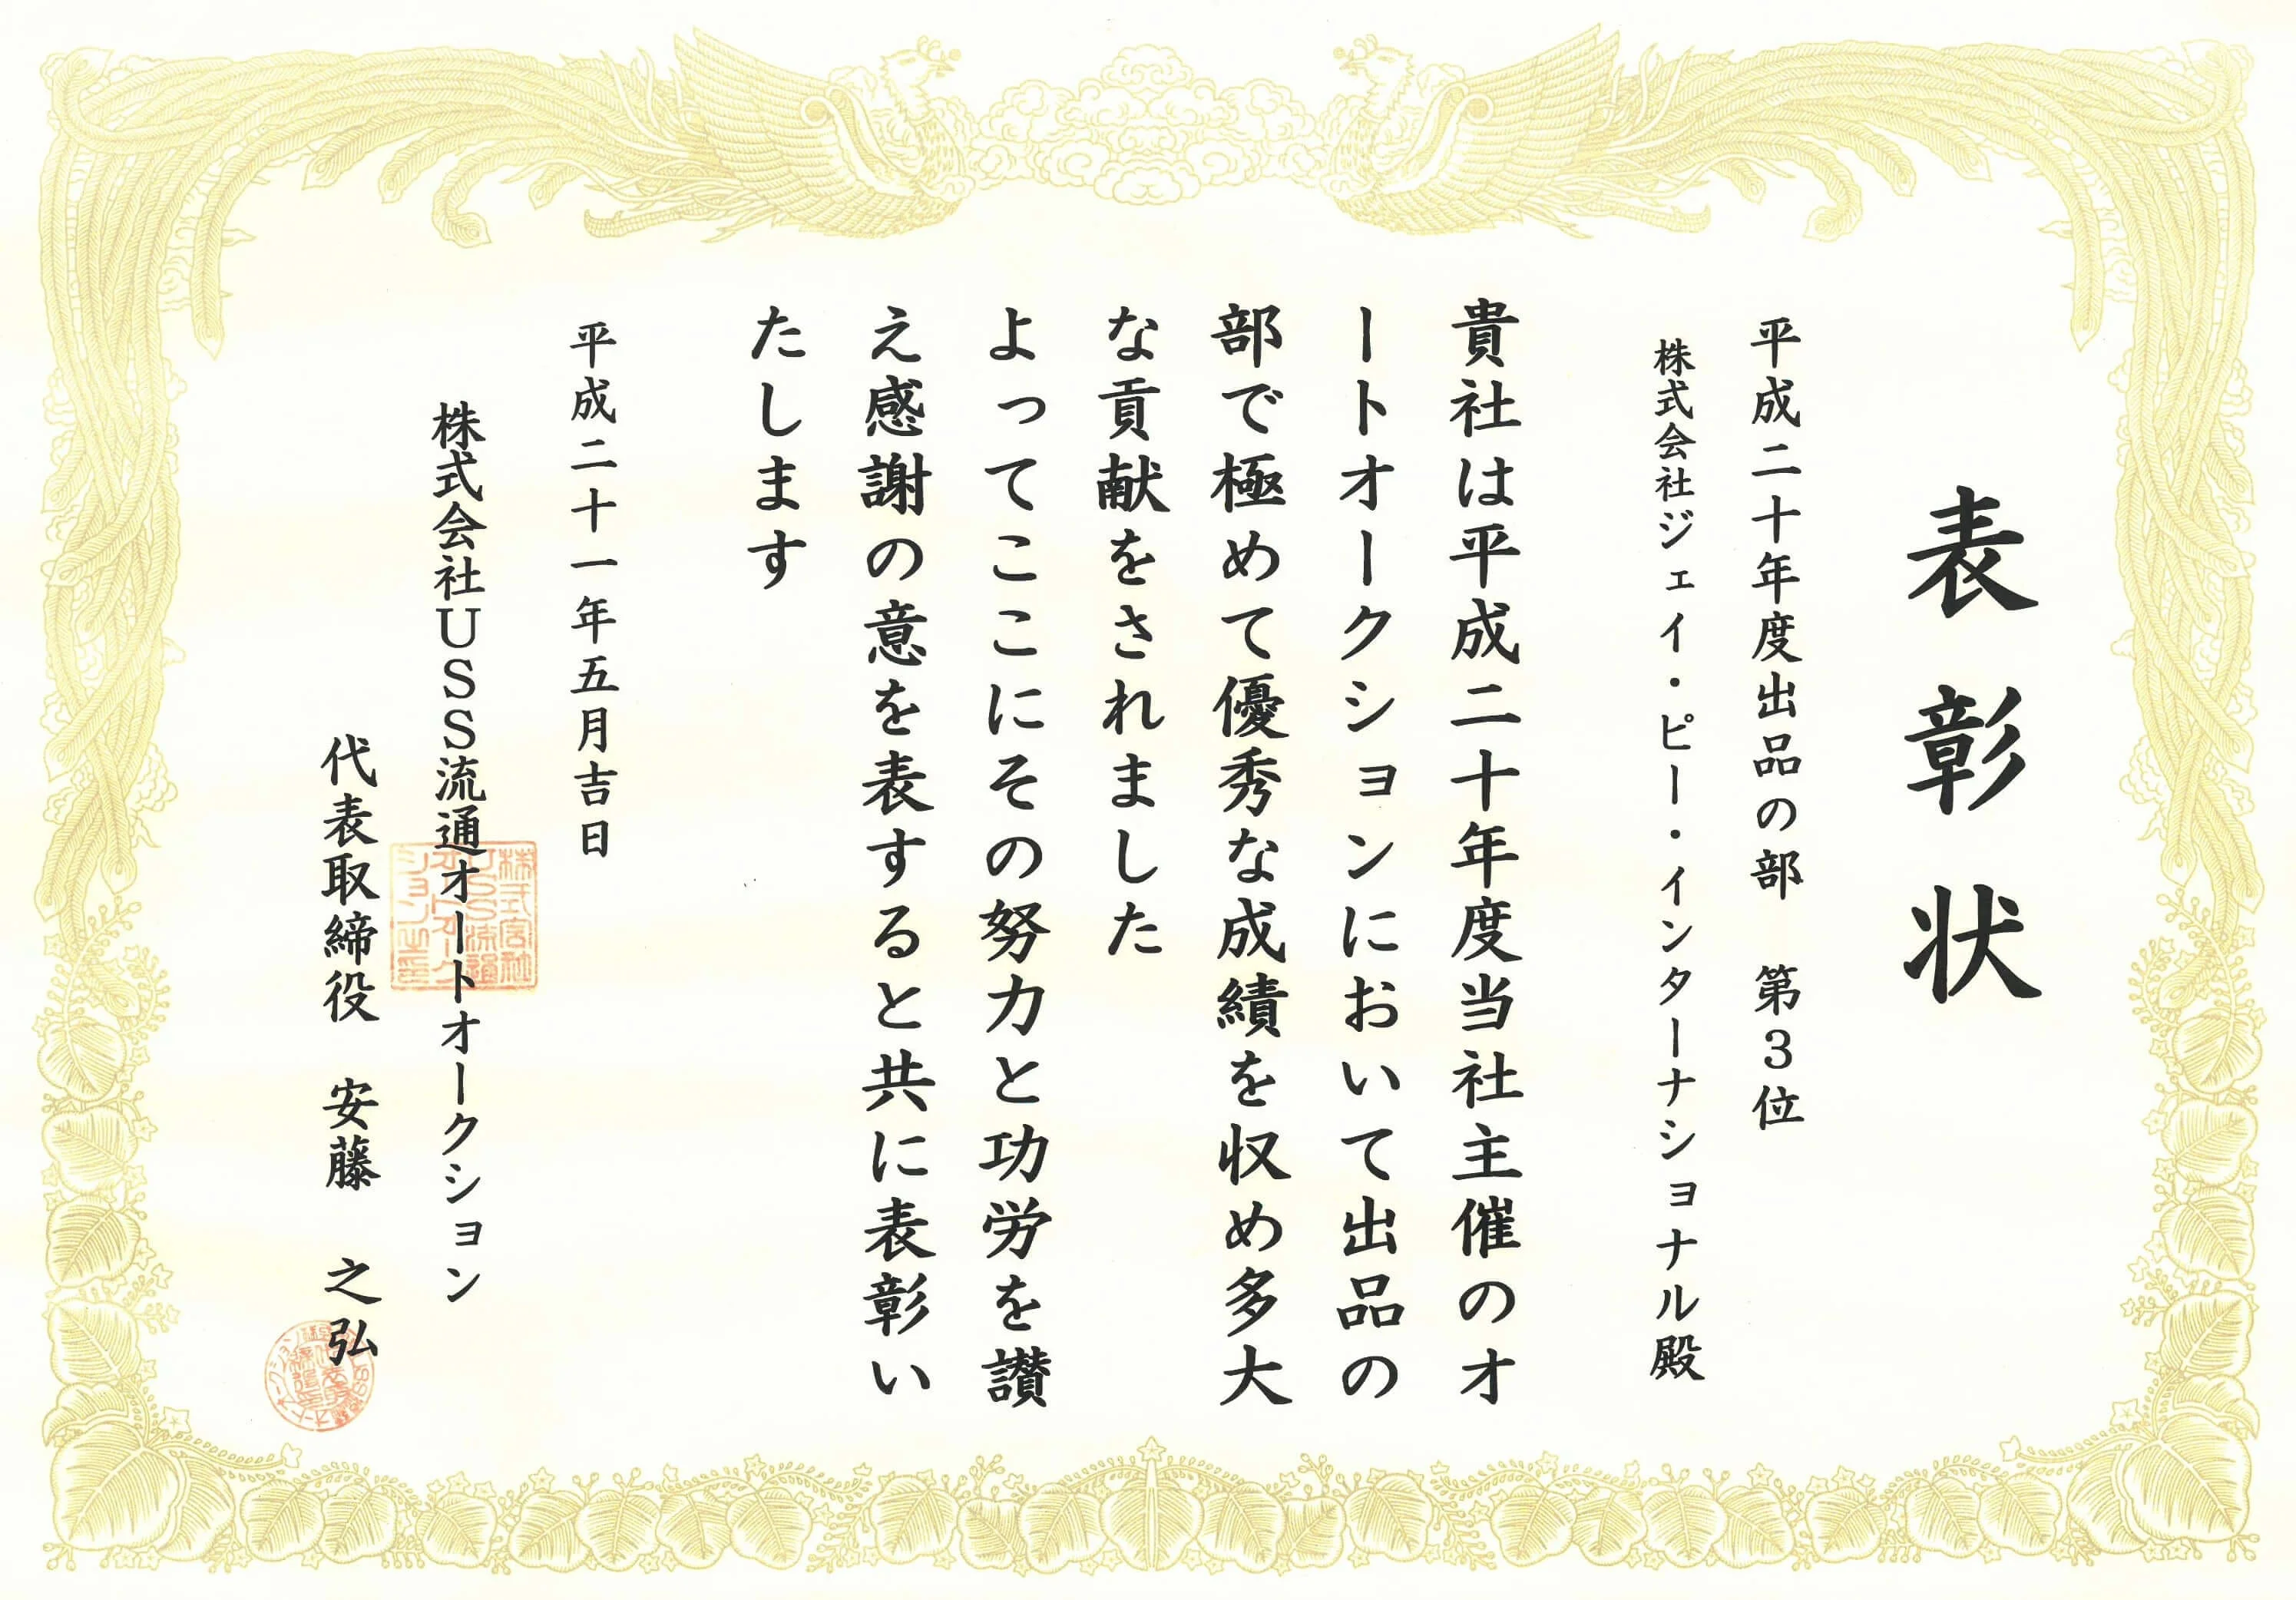 表彰状
平成二十年度出品の部　第３位
株式会社ジェイ・ピー・インターナショナル殿
貴社は平成二十年度当社主催のオ
ートオークションにおいて出品の
部で極めて優秀な成績を収め多大
な貢献をされました
よってここにその努力と功労を讃
え感謝の意を表すると共に表彰い
たします
平成二十一年五月吉日
株式会社ＵＳＳ流通オートオークション
代表取締役　安藤　之弘